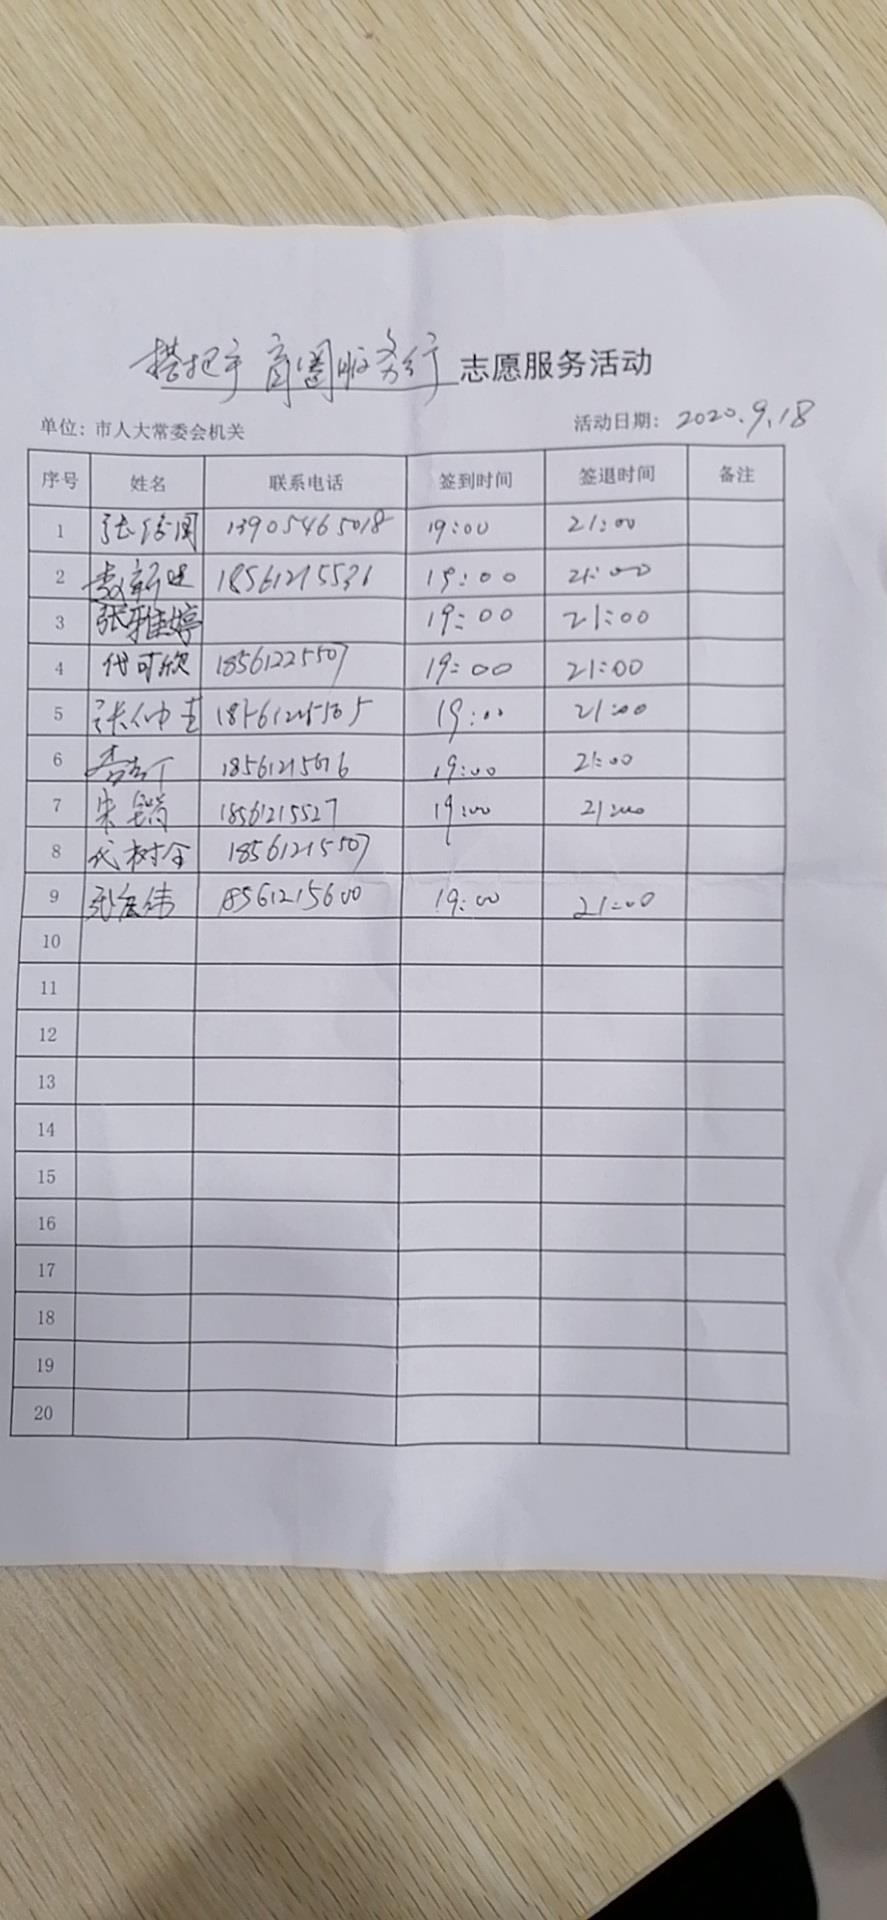 搭把手 商圈服务行 志愿服务活动
单位：市人大常委会机关 活动日期：2020.9.18
序号 姓名 联系电话 签到时间 签退时间 备注
1 13905465018 19:00 21:00
2 18561215531 19:00 21:00
3 张雅婷 19:00 21:00
4 代可欣 18561225507 19:00 21:00
5 18561215505 19:00 21:00
6 18561215616 19:00 21:00
7 18561215527 19:00 21:00
8 代树全 18561215507
9 18561215600 19:00 21:00
10
11
12
13
14
15
16
17
18
19
20